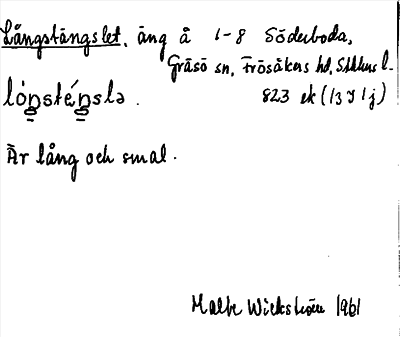 Långstängslet, äng å 1-8 Söderboda,
Gräsö sn, Frösåkers hd, Sthlms l.
lóŋsténsla. 823 ek (13 J 1 j)
Är lång och smal.
Malte Wickström 1961